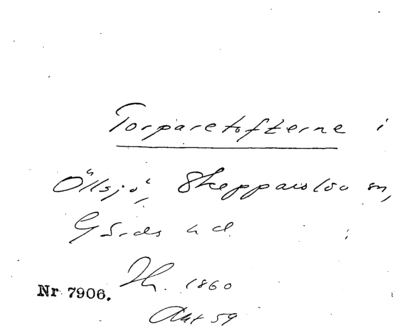 Torparetofterne i
Öllsjö, Skepparslöv sn,
Gärds hd.
Nr 7906.
1860
Akt 59